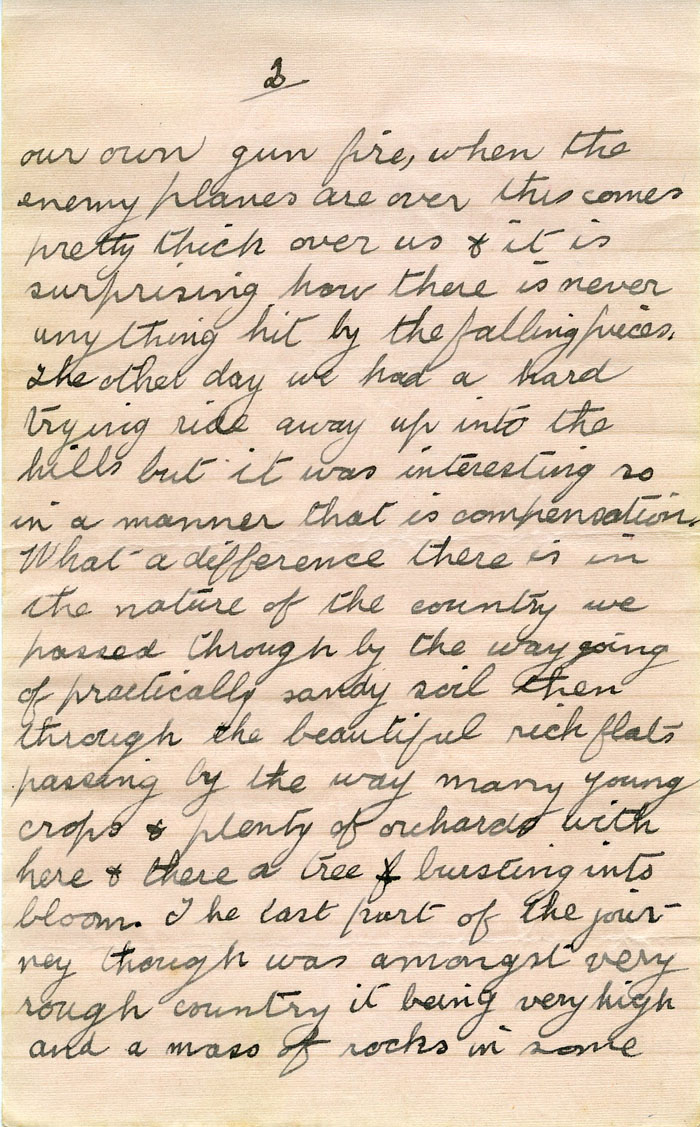 2
our own gun fire, when the
enemy planes are over this comes
pretty thick over us & it is
surprising how there is never
anything hit by the falling pieces.
The other day we had a hard
trying ride away up into the
hills but it was interesting so
in a manner that is compensation.
What a difference there is in
the nature of the country we
passed through by the way going
of practically sandy soil then
through the beautiful rich flats
passing by the way many young
crops & plenty of orchards with
here & there a tree bursting into
bloom. The last part of the jour-
ney though was amongst very
rough country it being very high
and a mass of rocks in some